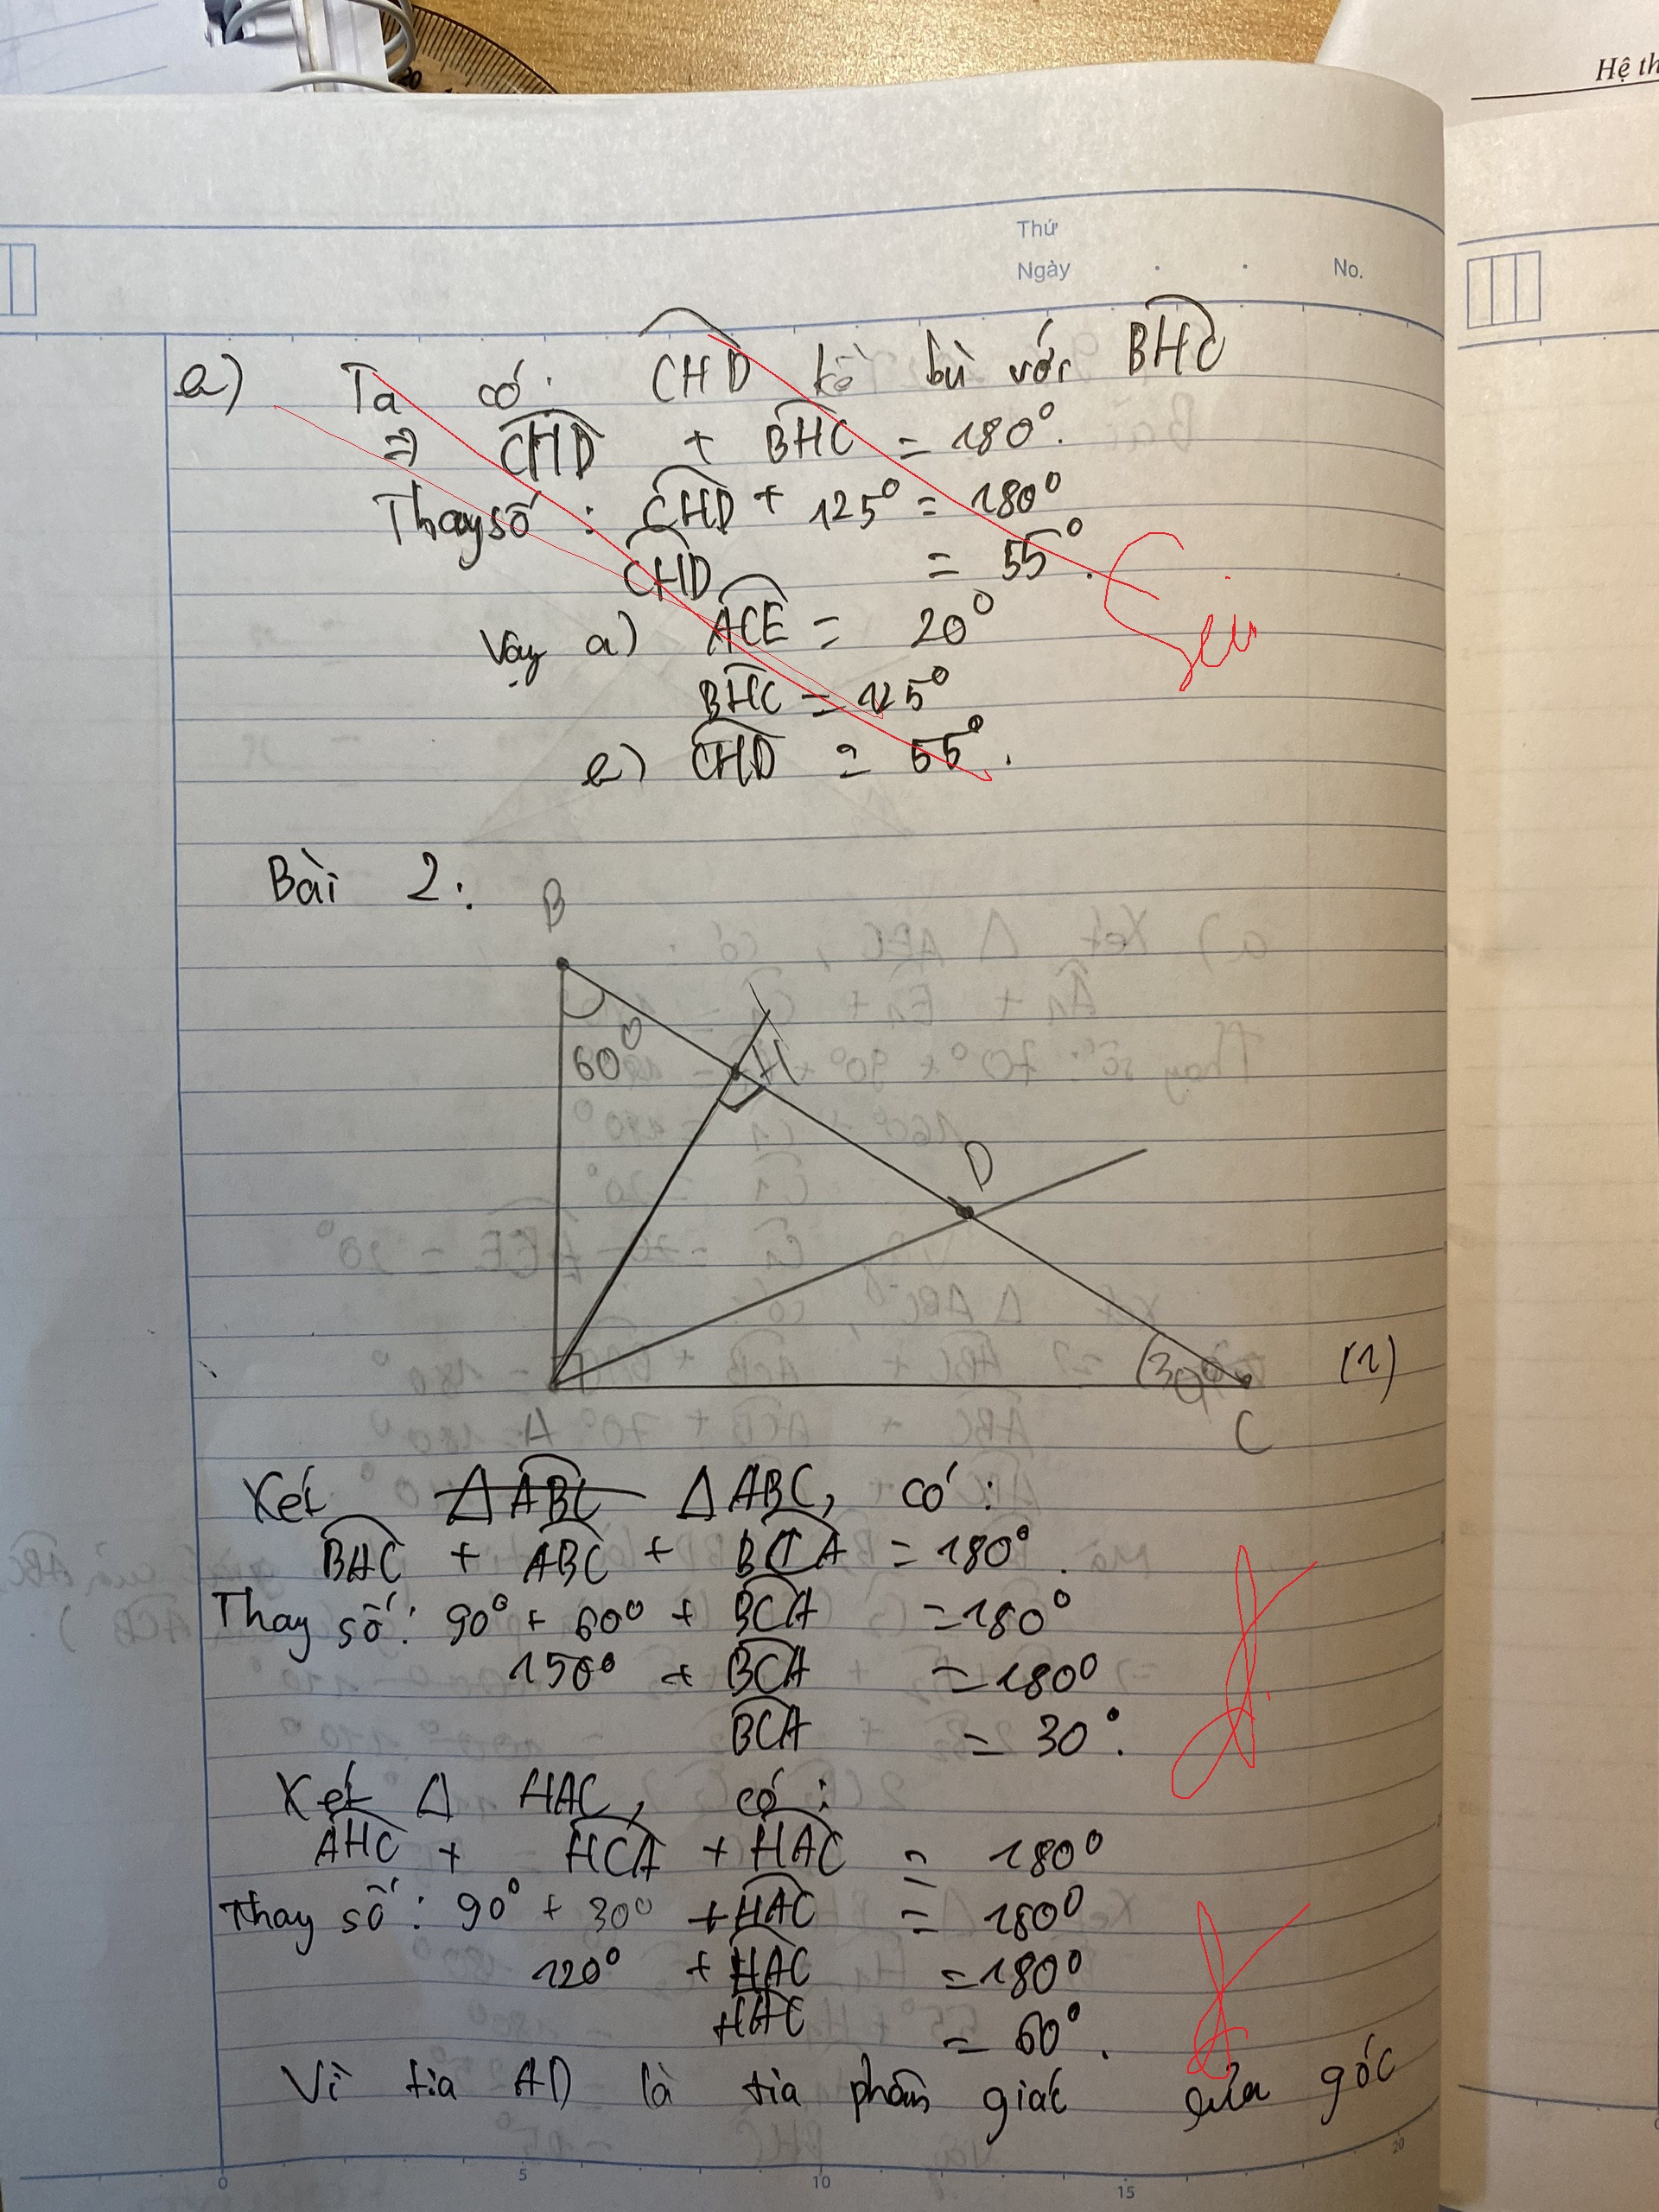 Hệ th
Thứ
Ngày . . No.
e) Ta có: CHD kề bù với BHC
⇒ CHD + BHC = 180°.
Thay số: CHD + 125° = 180°
CHD = 55°.
Sai
Vậy a) ACE = 20°
BHC = 125°
e) CHD = 55°.
Bài 2:
B
60°
H
D
30°
(1)
A
C
Xét ΔABC ΔABC, có:
BAC + ABC + BCA = 180°.
Thay số: 90° + 60° + BCA = 180°
150° + BCA = 180°
BCA = 30°.
đ
Xét Δ HAC, có:
AHC + HCA + HAC = 180°
Thay số: 90° + 30° + HAC = 180°
120° + HAC = 180°
HAC = 60°.
đ
Vì tia AD là tia phân giác của góc
0 5 10 15 20